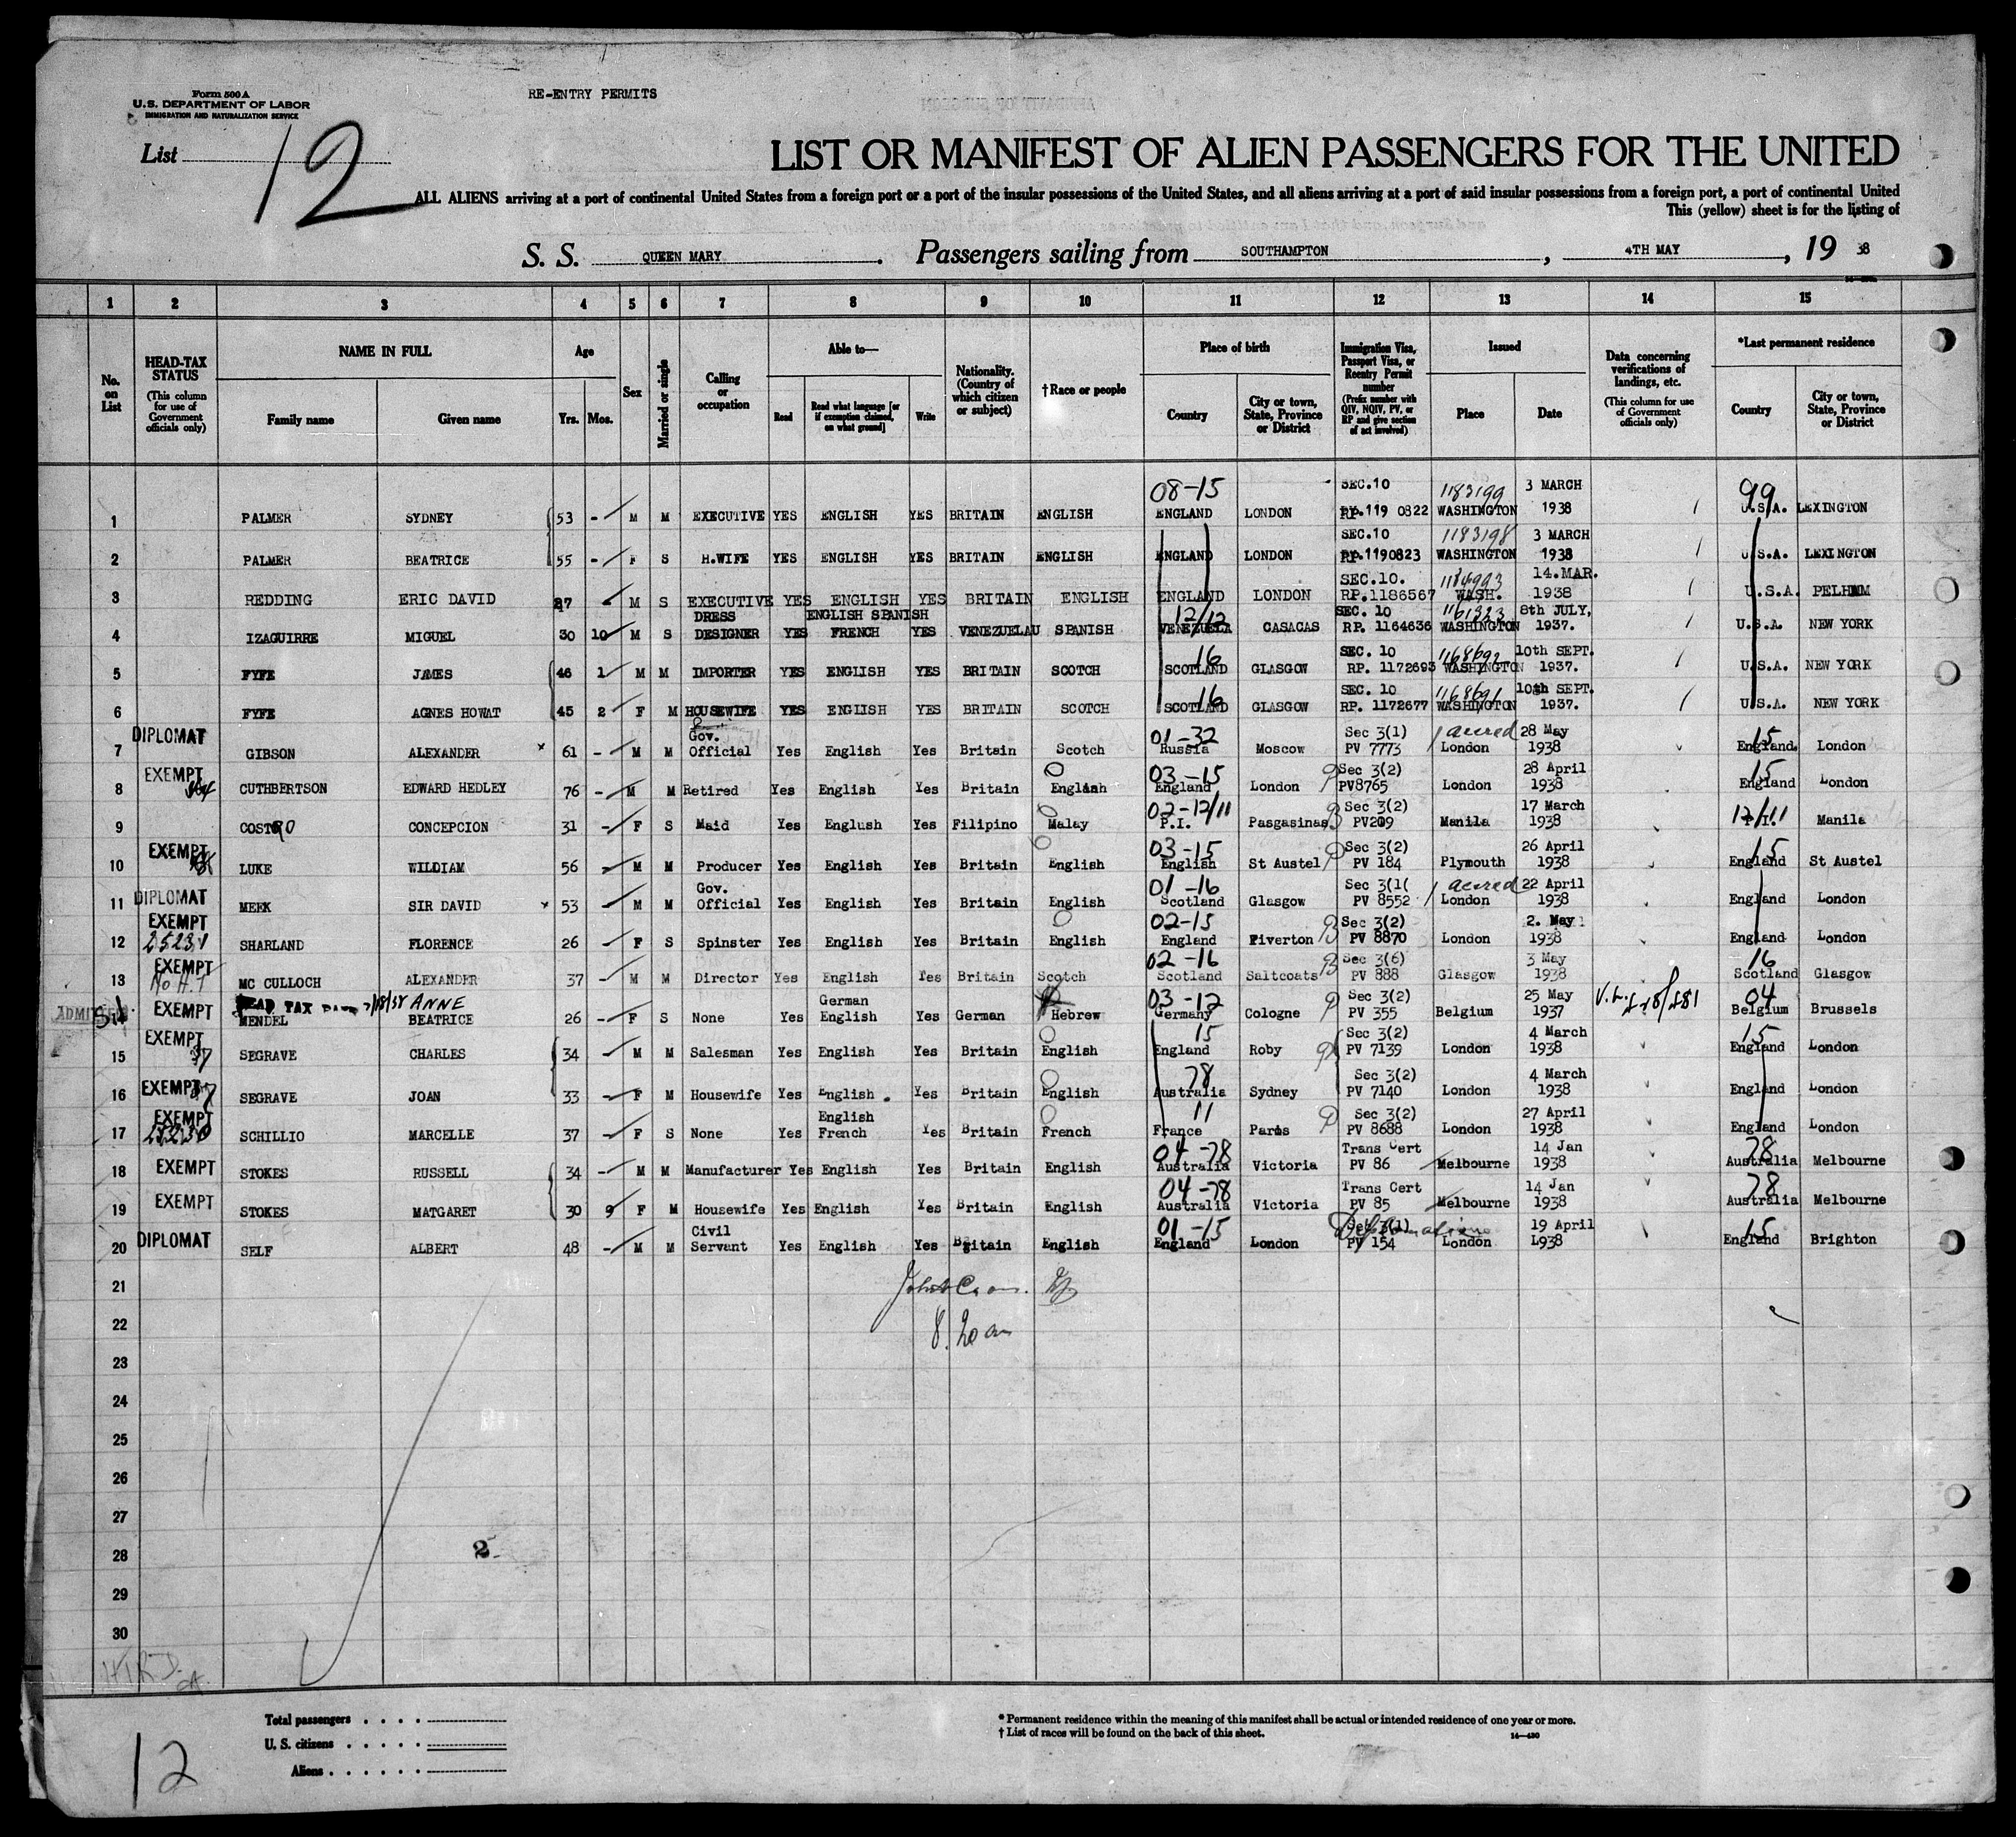 Form 500 A
U.S. DEPARTMENT OF LABOR
IMMIGRATION AND NATURALIZATION SERVICE
RE-ENTRY PERMITS
List 12
LIST OR MANIFEST OF ALIEN PASSENGERS FOR THE UNITED
ALL ALIENS arriving at a port of continental United States from a foreign port or a port of the insular possessions of the United States, and all aliens arriving at a port of said insular possessions from a foreign port, a port of continental United
This (yellow) sheet is for the listing of
S. S. QUEEN MARY. Passengers sailing from SOUTHAMPTON, 4TH MAY, 19 38
1 2 3 4 5 6 7 8 9 10 11 12 13 14 15
No. on List
HEAD-TAX STATUS (This column for use of Government officials only)
NAME IN FULL Family name Given name
Age Yrs. Mos.
Sex
Married or single
Calling or occupation
Able to— Read Read what language [or if exemption claimed, on what ground] Write
Nationality. (Country of which citizen or subject)
†Race or people
Place of birth Country City or town, State, Province or District
Immigration Visa, Passport Visa, or Reentry Permit number (Prefix number with QIV, NQIV, PV, or RP and give section of act involved)
Issued Place Date
Data concerning verifications of landings, etc. (This column for use of Government officials only)
*Last permanent residence Country City or town, State, Province or District
08-15 SEC.10 1183199 3 MARCH 99
1 PALMER SYDNEY 53 - M M EXECUTIVE YES ENGLISH YES BRITAIN ENGLISH ENGLAND LONDON RP.119 0822 WASHINGTON 1938 U.S.A. LEXINGTON
SEC.10 1183198 3 MARCH
2 PALMER BEATRICE 55 - F S H.WIFE YES ENGLISH YES BRITAIN ENGLISH ENGLAND LONDON RP.1190823 WASHINGTON 1938 U.S.A. LEXINGTON
SEC.10. 1184993 14.MAR.
3 REDDING ERIC DAVID 27 - M S EXECUTIVE YES ENGLISH YES BRITAIN ENGLISH ENGLAND LONDON RP.1186567 WASH. 1938 U.S.A. PELHAM
DRESS ENGLISH SPANISH 12/12 SEC. 10 1161323 8th JULY,
4 IZAGUIRRE MIGUEL 30 10 M S DESIGNER YES FRENCH YES VENEZUELAU SPANISH VENEZUELA CASACAS RP. 1164636 WASHINGTON 1937. U.S.A. NEW YORK
16 SEC. 10 1168692 10th SEPT.
5 FYFE JAMES 46 1 M M IMPORTER YES ENGLISH YES BRITAIN SCOTCH SCOTLAND GLASGOW RP. 1172693 WASHINGTON 1937. U.S.A. NEW YORK
16 SEC. 10 1168691 10th SEPT.
6 FYFE AGNES HOWAT 45 2 F M HOUSEWIFE YES ENGLISH YES BRITAIN SCOTCH SCOTLAND GLASGOW RP. 1172677 WASHINGTON 1937. U.S.A. NEW YORK
DIPLOMAT Gov. 01-32 Sec 3(1) accred 28 May 15
7 GIBSON ALEXANDER x 61 - M M Official Yes English Yes Britain Scotch Russia Moscow PV 7773 London 1938 England. London
EXEMPT 03-15 Sec 3(2) 28 April 15
8 CUTHBERTSON EDWARD HEDLEY 76 - M M Retired Yes English Yes Britain English England London PV8765 London 1938 England London
02-12/11 Sec 3(2) 17 March 12/11
9 COSTRO CONCEPCION 31 - F S Maid Yes Englush Yes Filipino Malay P.I. Pasgasinas PV209 Manila 1938 P.I. Manila
EXEMPT 03-15 Sec 3(2) 26 April 15
10 LUKE WILDIAM 56 - M M Producer Yes English Yes Britain English English St Austel PV 184 Plymouth 1938 England St Austel
DIPLOMAT Gov. 01-16 Sec 3(1( accred 22 April
11 MEEK SIR DAVID x 53 - M M Official Yes English Yes Britain English Scotland Glasgow PV 8552 London 1938 England London
EXEMPT 02-15 Sec 3(2) 2. May
12 25231 SHARLAND FLORENCE 26 - F S Spinster Yes English Yes Britain English England Fiverton PV 8870 London 1938 England London
EXEMPT 02-16 Sec 3(6) 3 May 16
13 No H.T MC CULLOCH ALEXANDER 37 - M M Director Yes English Yes Britain Scotch Scotland Saltcoats PV 888 Glasgow 1938 Scotland Glasgow
HEAD TAX ANNE German 03-12 Sec 3(2) 25 May 04
ADMITTED 14 EXEMPT MENDEL BEATRICE 26 - F S None Yes English Yes German Hebrew Germany Cologne PV 355 Belgium 1937 Belgium Brussels
EXEMPT 15 Sec 3(2) 4 March 15
15 37 SEGRAVE CHARLES 34 - M M Salesman Yes English Yes Britain English England Roby PV 7139 London 1938 England London
EXEMPT 78 Sec 3(2) 4 March
16 SEGRAVE JOAN 33 - F M Housewife Yes English. Yes Britain English Australia Sydney PV 7140 London 1938 England London
EXEMPT English 11 Sec 3(2) 27 April
17 SCHILLIO MARCELLE 37 - F S None Yes French Yes Britain French France Paris PV 8688 London 1938 England London
EXEMPT 04-78 Trans Cert 14 Jan 78
18 STOKES RUSSELL 34 - M M Manufacturer Yes English Yes Britain English Australia Victoria PV 86 Melbourne 1938 Australia Melbourne
EXEMPT 04-78 Trans Cert 14 Jan 78
19 STOKES MATGARET 30 9 F M Housewife Yes English Yes Britain English Australia Victoria PV 85 Melbourne 1938 Australia Melbourne
DIPLOMAT Civil 01-15 Sec 3(1) 19 April 15
20 SELF ALBERT 48 - M M Servant Yes English Yes Britain English England London PV 154 London 1938 England Brighton
21
22 8.20 am
23
24
25
26
27
28 2
29
30
12
Total passengers
U. S. citizens
Aliens
* Permanent residence within the meaning of this manifest shall be actual or intended residence of one year or more.
† List of races will be found on the back of this sheet.
14—430